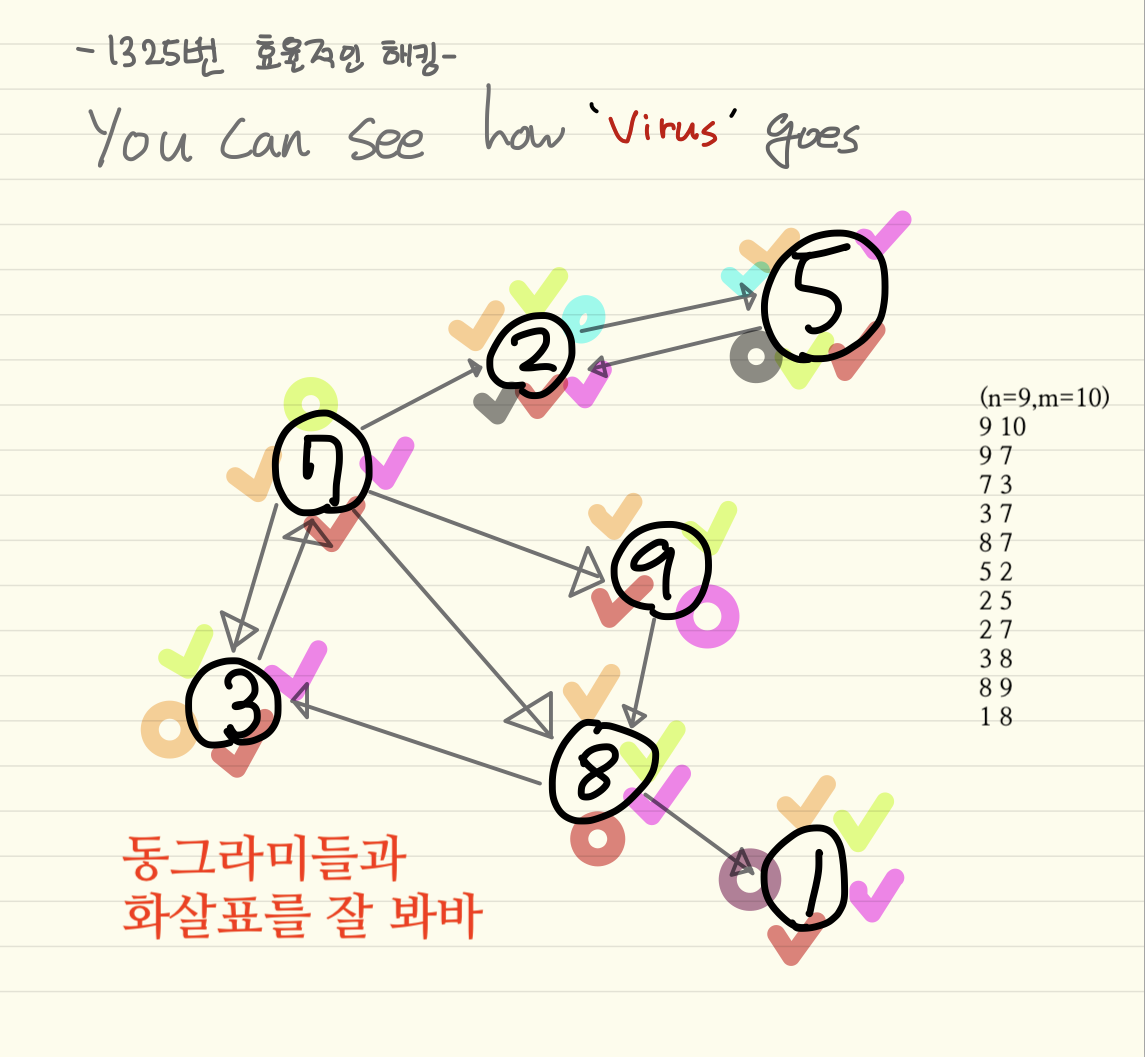 -1325번 효율적인 해킹-
You can see how 'Virus' goes
5
2
7
9
3
8
1
(n=9,m=10)
9 10
9 7
7 3
3 7
8 7
5 2
2 5
2 7
3 8
8 9
1 8
동그라미들과
화살표를 잘 봐바